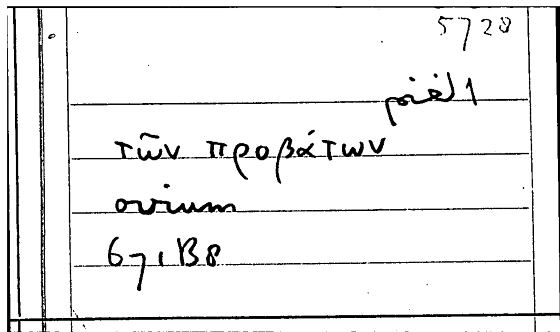 5728
τῶν προβάτων
ovium
671B8